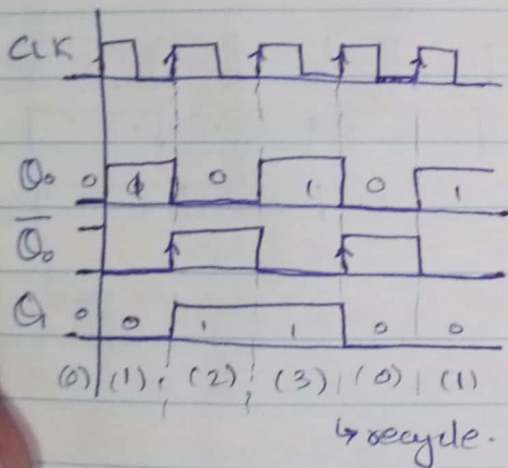 CLK
Q₀ 0 1 0 1 0 1
Q̅₀
Q 0 0 1 1 0 0
(0) (1) (2) (3) (0) (1)
↳ recycle.